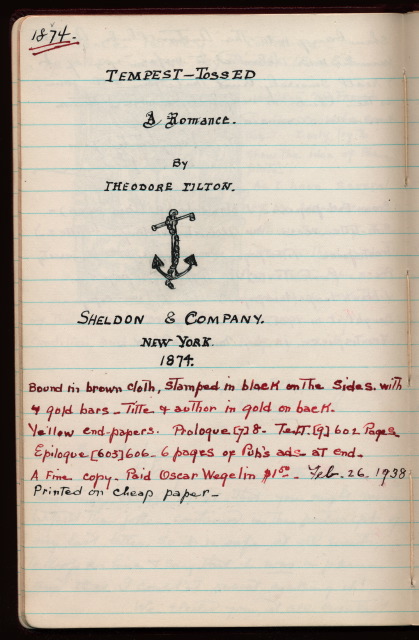 1874.
TEMPEST-TOSSED
A Romance.
By
THEODORE TILTON.
SHELDON & COMPANY.
NEW YORK.
1874.
Bound in brown cloth, stamped in black on the sides. with
4 gold bars - Title & author in gold on back.
Yellow end-papers. Prologue [7] 8. Text [9] 602 Pages
Epilogue [603] 606 - 6 pages of Pub's ads - at end.
A Fine copy - Paid Oscar Wegelin $1.50 - Feb. 26. 1938
Printed on cheap paper -